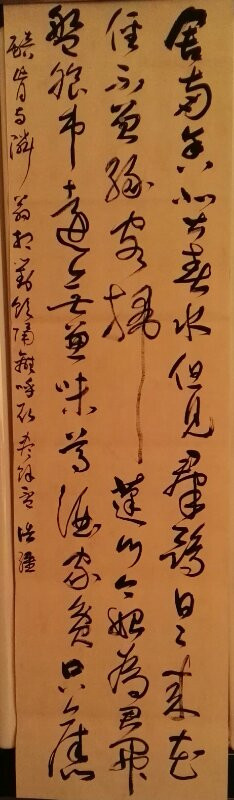 舍南舍北皆春水但见群鸥日日来花
径不曾缘客扫蓬门今始为君开
盘飧市远无兼味尊酒家贫只旧
醅肯与邻翁相对饮隔篱呼取尽余杯